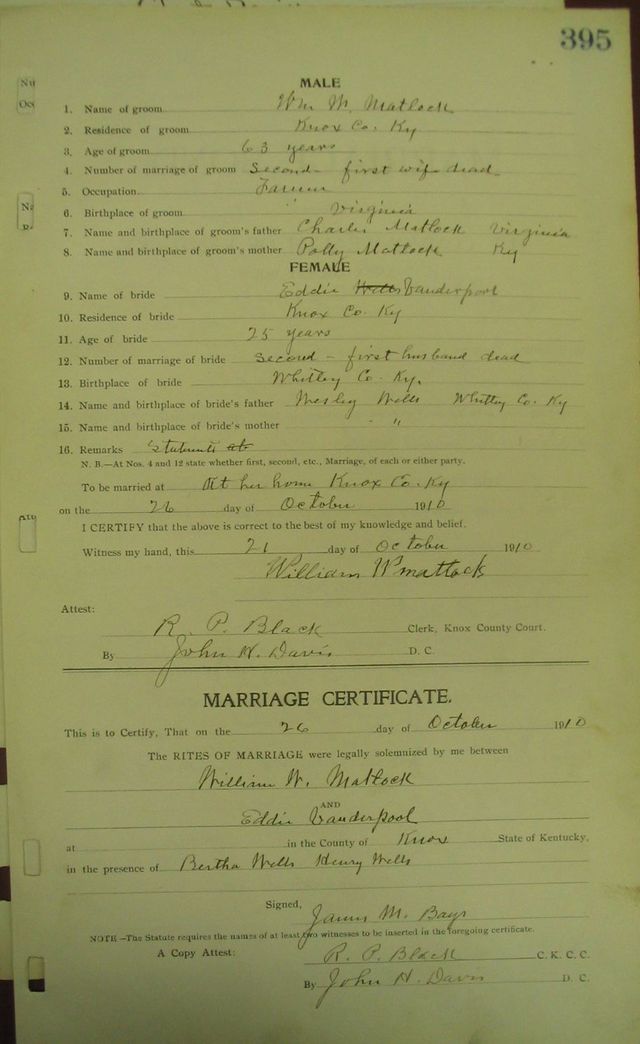 395
MALE
1. Name of groom Wm M. Matlock
2. Residence of groom Knox Co. Ky
3. Age of groom 63 years
4. Number of marriage of groom Second - first wife dead
5. Occupation Farmer
6. Birthplace of groom " Virginia
7. Name and birthplace of groom's father Charles Matlock Virginia
8. Name and birthplace of groom's mother Polly Matlock Ky
FEMALE
9. Name of bride Eddie Wells Vanderpool
10. Residence of bride Knox Co. Ky
11. Age of bride 25 years
12. Number of marriage of bride Second - first husband dead
13. Birthplace of bride Whitley Co. Ky.
14. Name and birthplace of bride's father Wesley Wells Whitley Co. Ky
15. Name and birthplace of bride's mother "
16. Remarks
N. B.—At Nos. 4 and 12 state whether first, second, etc., Marriage, of each or either party.
To be married at At her home Knox Co. Ky
on the 26 day of October 1910
I CERTIFY that the above is correct to the best of my knowledge and belief.
Witness my hand, this 21 day of October 1910
William W Matlock
Attest:
R. P. Black Clerk, Knox County Court.
By John H. Davis D. C.
MARRIAGE CERTIFICATE.
This is to Certify, That on the 26 day of October 1910
The RITES OF MARRIAGE were legally solemnized by me between
William W. Matlock
AND
Eddie Vanderpool
at in the County of Knox State of Kentucky,
in the presence of Bertha Wells Henry Wells
Signed,
James M. Bays
NOTE—The Statute requires the names of at least two witnesses to be inserted in the foregoing certificate.
A Copy Attest: R. P. Black C. K. C. C.
By John H. Davis D. C.